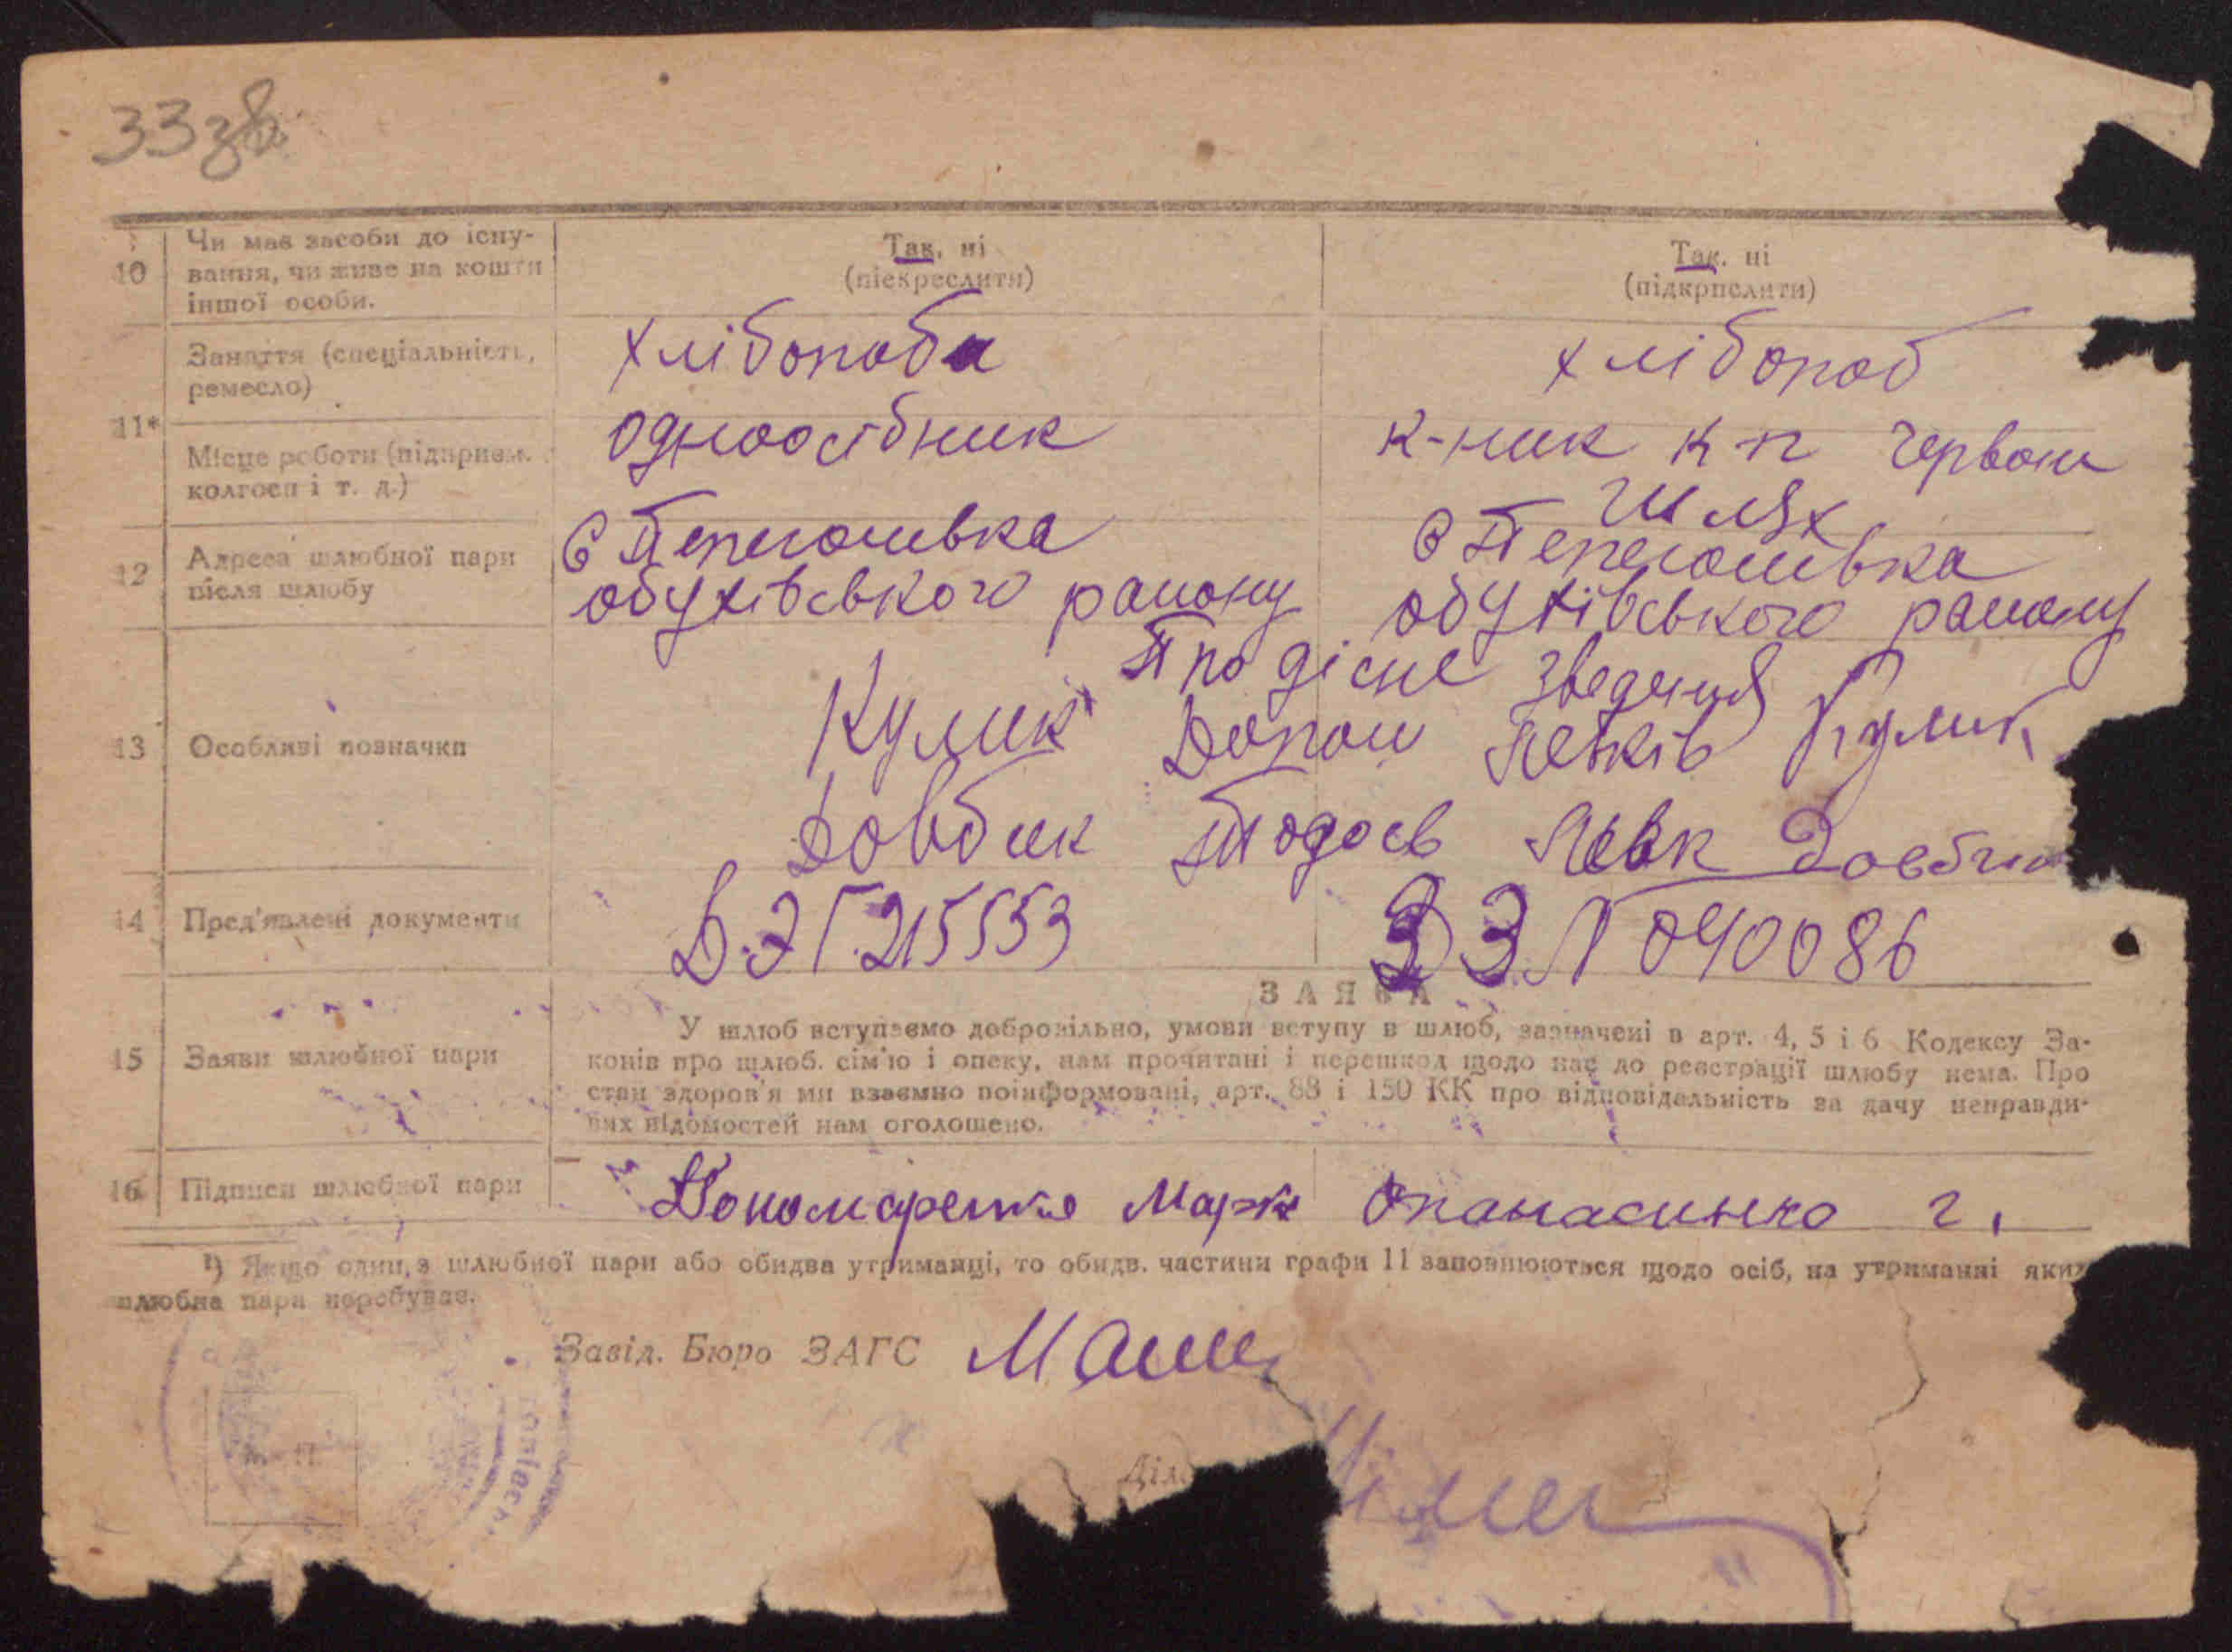 33 зв.
10 Чи має засоби до існу-
вання, чи живе на кошти
іншої особи.
Так, ні
(підкреслити)
Так, ні
(підкрпслити)
11*
Заняття (спеціальність,
ремесло)
хлібороб
хлібороб
Місце роботи (підприєм.
колгосп і т. д.)
одноосібник
к-ник к-п Червон
Шлях
12 Адреса шлюбної пари
після шлюбу
С Перегонівка
обухівського району
С Перегонівка
обухівського району
13 Особливі позначки
Про дісне зведення
Кулик
Довбик Тодось
14 Пред'явлені документи
215553
040086
15 Заяви шлюбної пари
ЗАЯВА
У шлюб вступаємо добровільно, умови вступу в шлюб, зазначені в арт. 4, 5 і 6 Кодексу За-
конів про шлюб. сім'ю і опеку, нам прочитані і перешкод щодо нас до реєстрації шлюбу нема. Про
стан здоров'я ми взаємно поінформовані, арт. 88 і 150 КК про відповідальність за дачу неправди-
вих відомостей нам оголошено.
16 Підписи шлюбної пари
Пономаренко Марк
¹) Якщо один з шлюбної пари або обидва утриманці, то обидв. частини графи 11 заповнюються щодо осіб, на утриманні яких
шлюбна пара перебуває.
Завід. Бюро ЗАГС